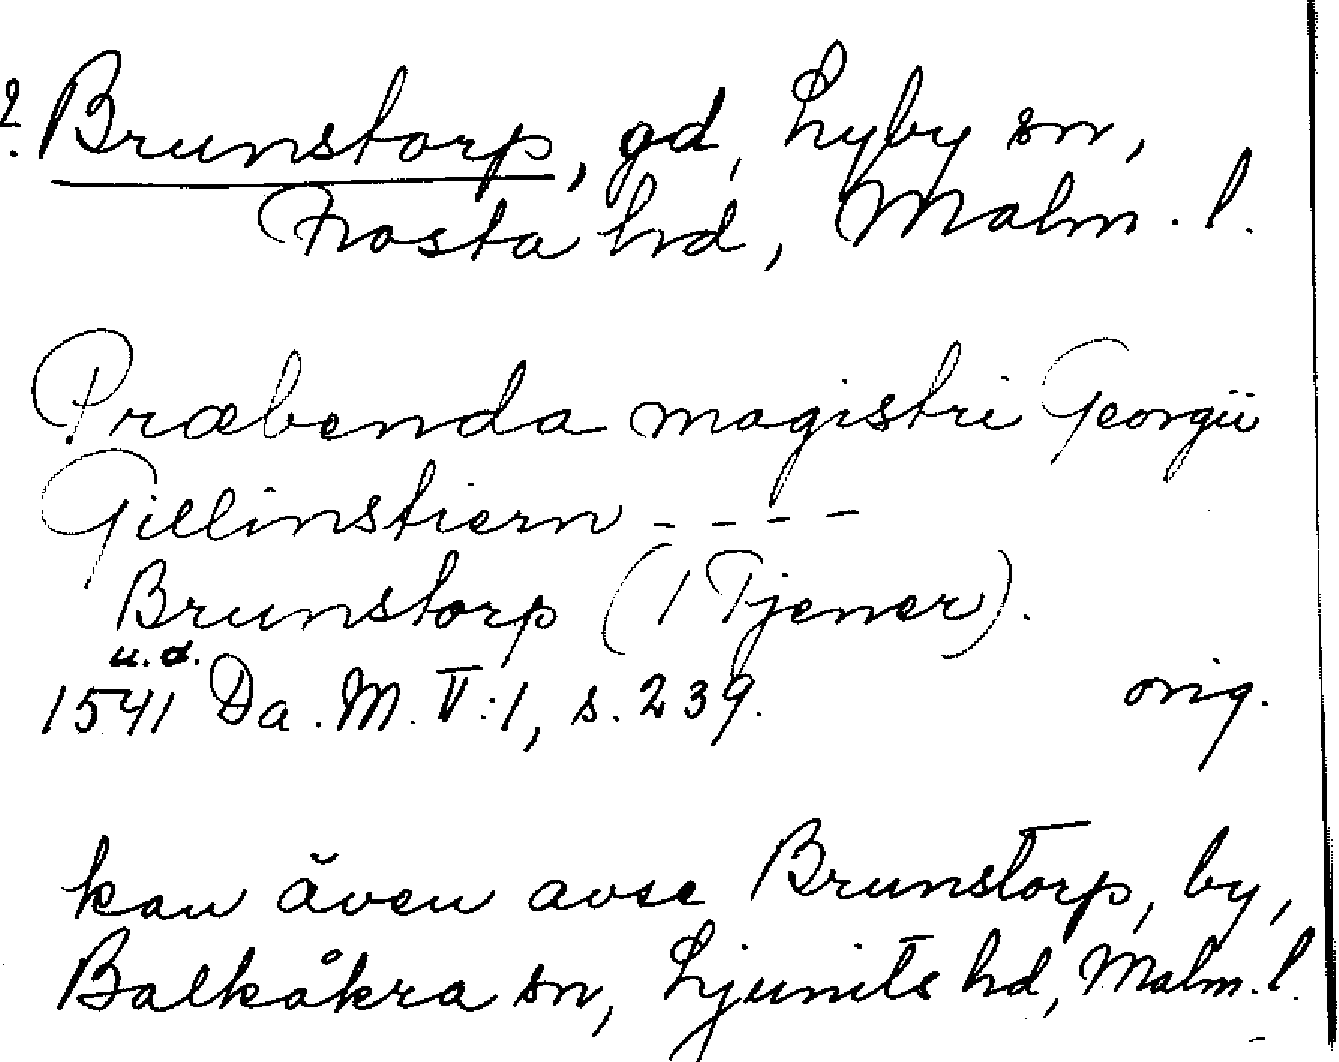 ?. Brunstorp, gd, Lyby sn,
Frosta hd, Malm. l.
Præbenda magistri Georgii
Gillinstiern - - - -
Brunstorp (1 Tjener).
u.d.
1541 Da. M. V:1, s. 239. orig.
kan även avse Brunstorp, by,
Balkåkra sn, Ljunits hd, Malm. l.